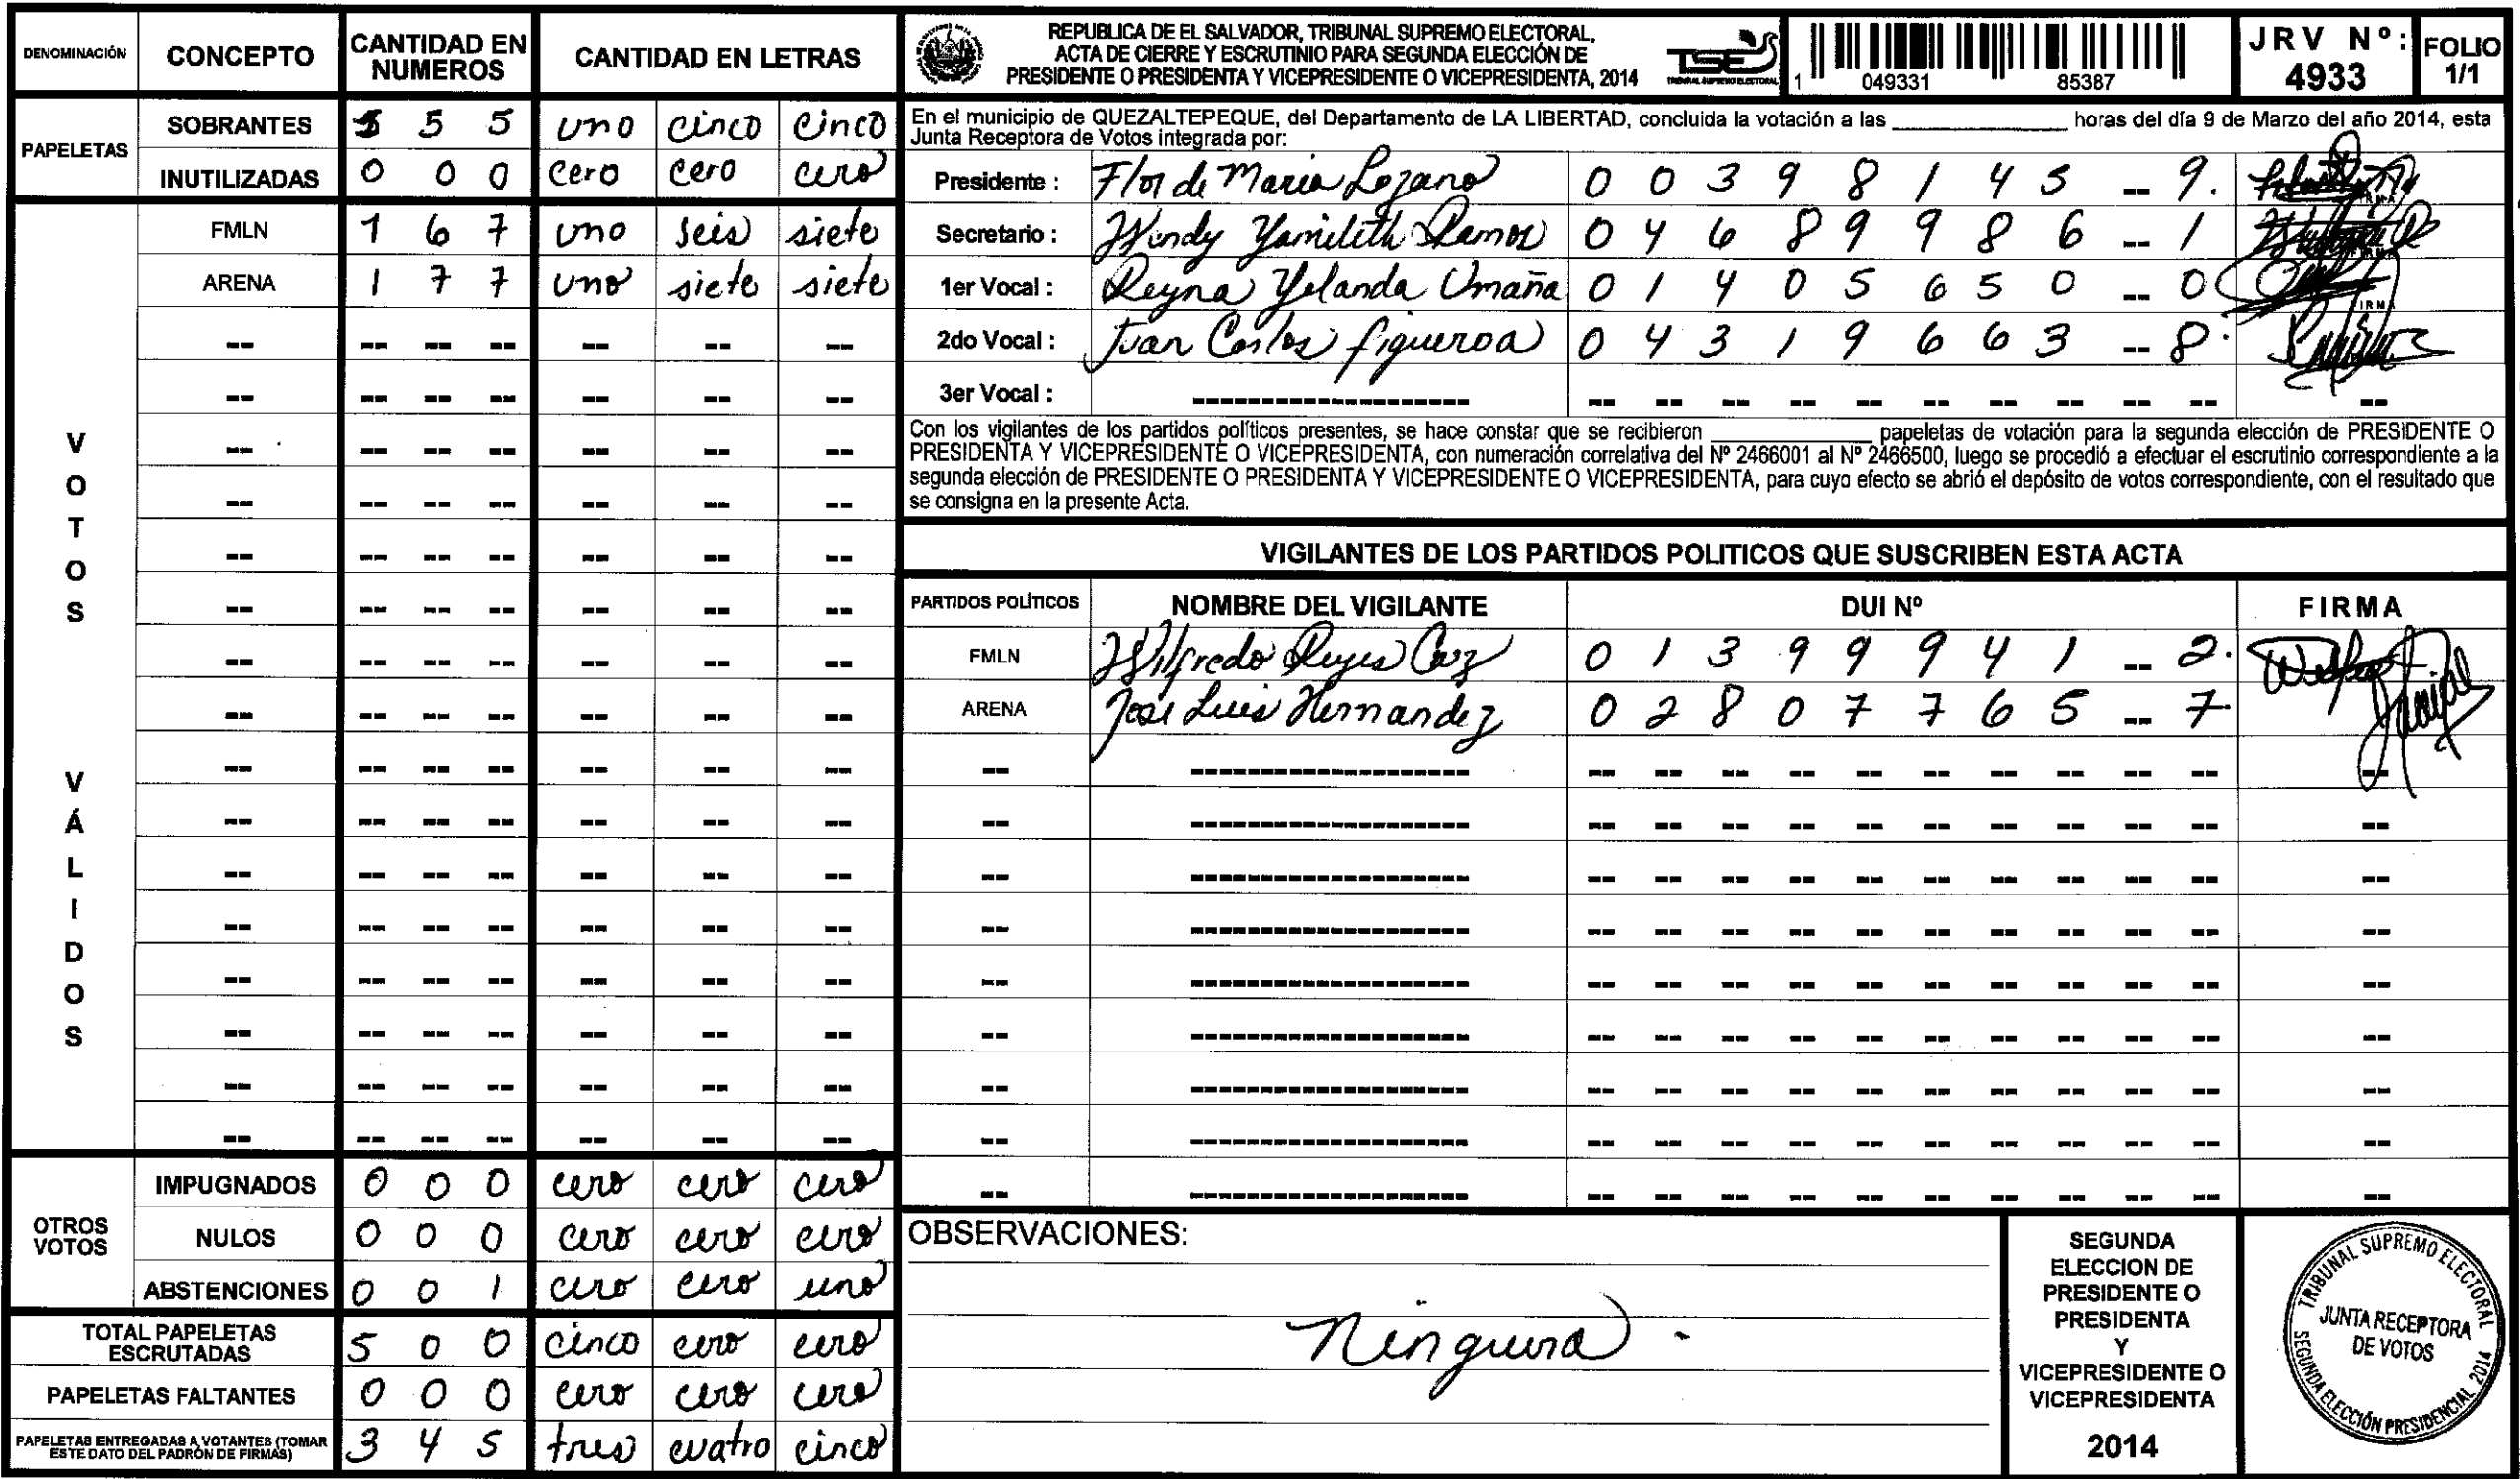 DENOMINACIÓN CONCEPTO CANTIDAD EN NUMEROS CANTIDAD EN LETRAS
PAPELETAS
SOBRANTES 1 5 5 uno cinco cinco
INUTILIZADAS 0 0 0 cero cero cero
VOTOS VÁLIDOS
FMLN 1 6 7 uno seis siete
ARENA 1 7 7 uno siete siete
OTROS VOTOS
IMPUGNADOS 0 0 0 cero cero cero
NULOS 0 0 0 cero cero cero
ABSTENCIONES 0 0 1 cero cero uno
TOTAL PAPELETAS ESCRUTADAS 5 0 0 cinco cero cero
PAPELETAS FALTANTES 0 0 0 cero cero cero
PAPELETAS ENTREGADAS A VOTANTES (TOMAR ESTE DATO DEL PADRÓN DE FIRMAS) 3 4 5 tres cuatro cinco
REPUBLICA DE EL SALVADOR, TRIBUNAL SUPREMO ELECTORAL,
ACTA DE CIERRE Y ESCRUTINIO PARA SEGUNDA ELECCIÓN DE
PRESIDENTE O PRESIDENTA Y VICEPRESIDENTE O VICEPRESIDENTA, 2014
TSE
TRIBUNAL SUPREMO ELECTORAL
1 049331 85387
JRV Nº: 4933
FOLIO 1/1
En el municipio de QUEZALTEPEQUE, del Departamento de LA LIBERTAD, concluida la votación a las ____ horas del día 9 de Marzo del año 2014, esta
Junta Receptora de Votos integrada por:
Presidente : Flor de Maria Lozano 0 0 3 9 8 1 4 5 -- 9.
Secretario : Wendy Yamileth Ramos 0 4 6 8 9 9 8 6 -- 1
1er Vocal : Reyna Yolanda Umaña 0 1 4 0 5 6 5 0 -- 0
FIRMA
2do Vocal : Juan Carlos figueroa 0 4 3 1 9 6 6 3 -- 8.
3er Vocal :
Con los vigilantes de los partidos políticos presentes, se hace constar que se recibieron ____ papeletas de votación para la segunda elección de PRESIDENTE O
PRESIDENTA Y VICEPRESIDENTE O VICEPRESIDENTA, con numeración correlativa del Nº 2466001 al Nº 2466500, luego se procedió a efectuar el escrutinio correspondiente a la
segunda elección de PRESIDENTE O PRESIDENTA Y VICEPRESIDENTE O VICEPRESIDENTA, para cuyo efecto se abrió el depósito de votos correspondiente, con el resultado que
se consigna en la presente Acta.
VIGILANTES DE LOS PARTIDOS POLITICOS QUE SUSCRIBEN ESTA ACTA
PARTIDOS POLÍTICOS NOMBRE DEL VIGILANTE DUI Nº FIRMA
FMLN Wilfredo Reyes 0 1 3 9 9 9 4 1 -- 2.
ARENA José Luis Hernandez 0 2 8 0 7 7 6 5 -- 7
OBSERVACIONES:
Ninguna -
SEGUNDA
ELECCION DE
PRESIDENTE O
PRESIDENTA
Y
VICEPRESIDENTE O
VICEPRESIDENTA
2014
TRIBUNAL SUPREMO ELECTORAL
JUNTA RECEPTORA
DE VOTOS
SEGUNDA ELECCIÓN PRESIDENCIAL 2014